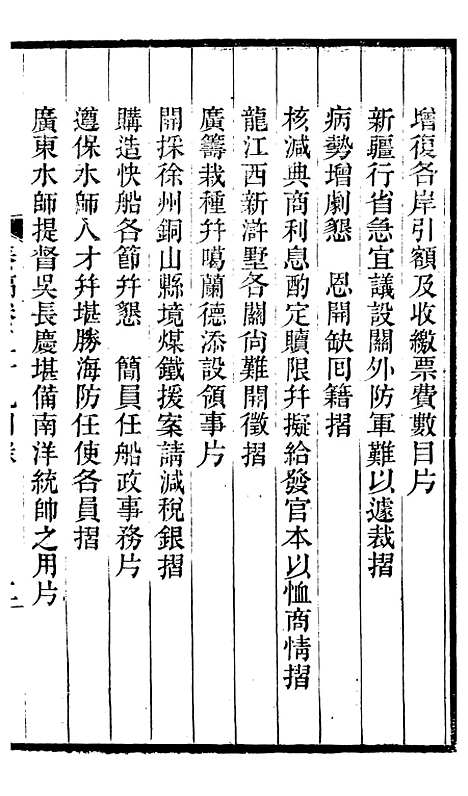 增復各岸引額及收繳票費數目片
新疆行省急宜議設關外防軍難以遽裁摺
病勢增劇懇　恩開缺回籍摺
核減典商利息酌定贖限幷擬給發官本以恤商情摺
龍江西新滸墅各關尙難開徵摺
廣籌栽種幷噶蘭德添設領事片
開採徐州銅山縣境煤鐵援案請減稅銀摺
購造快船各節幷懇　簡員任船政事務片
遵保水師人才幷堪勝海防任使各員摺
廣東水師提督吳長慶堪備南洋統帥之用片